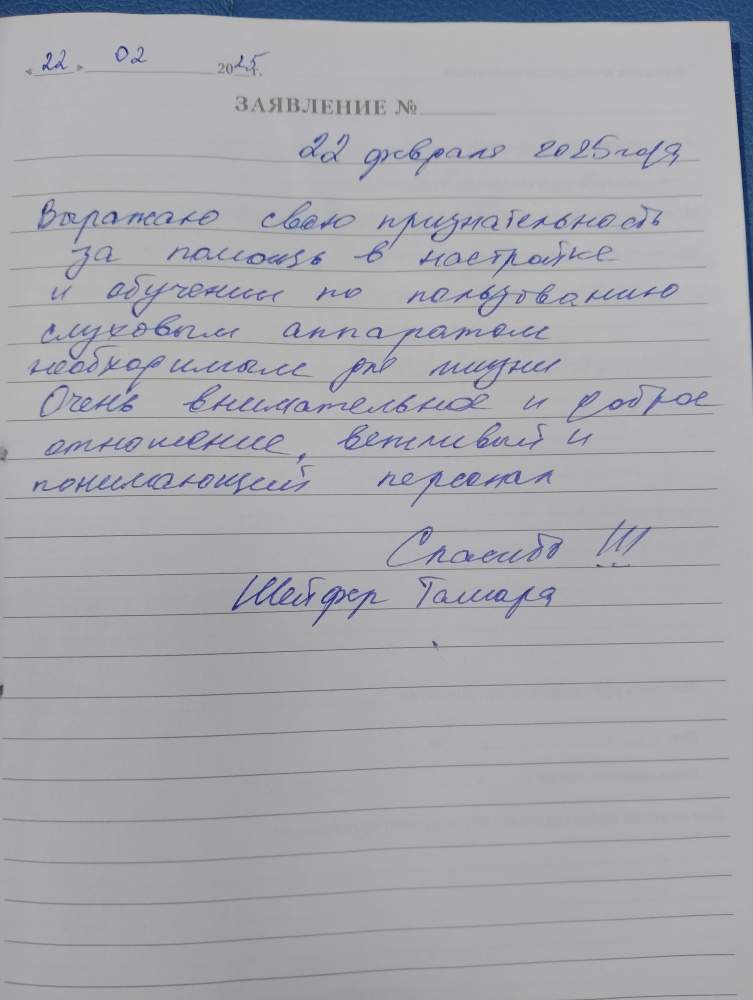 « 22 » 02 2025 г.
ЗАЯВЛЕНИЕ №
22 февраля 2025 года
Выражаю свою признательность
за помощь в настройке
и обучении по пользованию
слуховым аппаратом
необходимым для жизни
Очень внимательное и доброе
отношение, вежливый и
понимающий персонал
Спасибо !!!
Шейфер Тамара